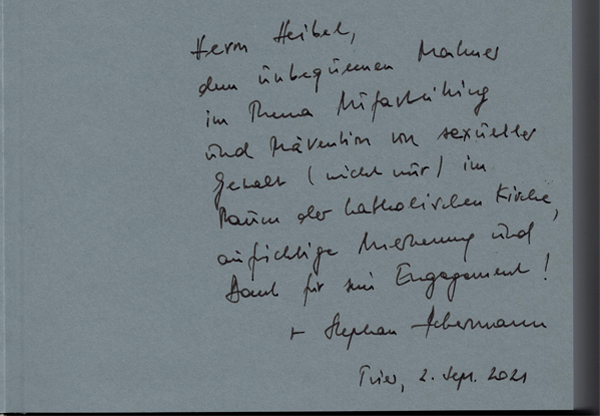 Herrn Heibel,
dem unbequemen Mahner
im Thema Aufarbeitung
und Prävention von sexueller
Gewalt (nicht nur) im
Raum der katholischen Kirche,
aufrichtige Anerkennung und
Dank für sein Engagement!
+ Stephan Ackermann
Trier, 2. Sept. 2021